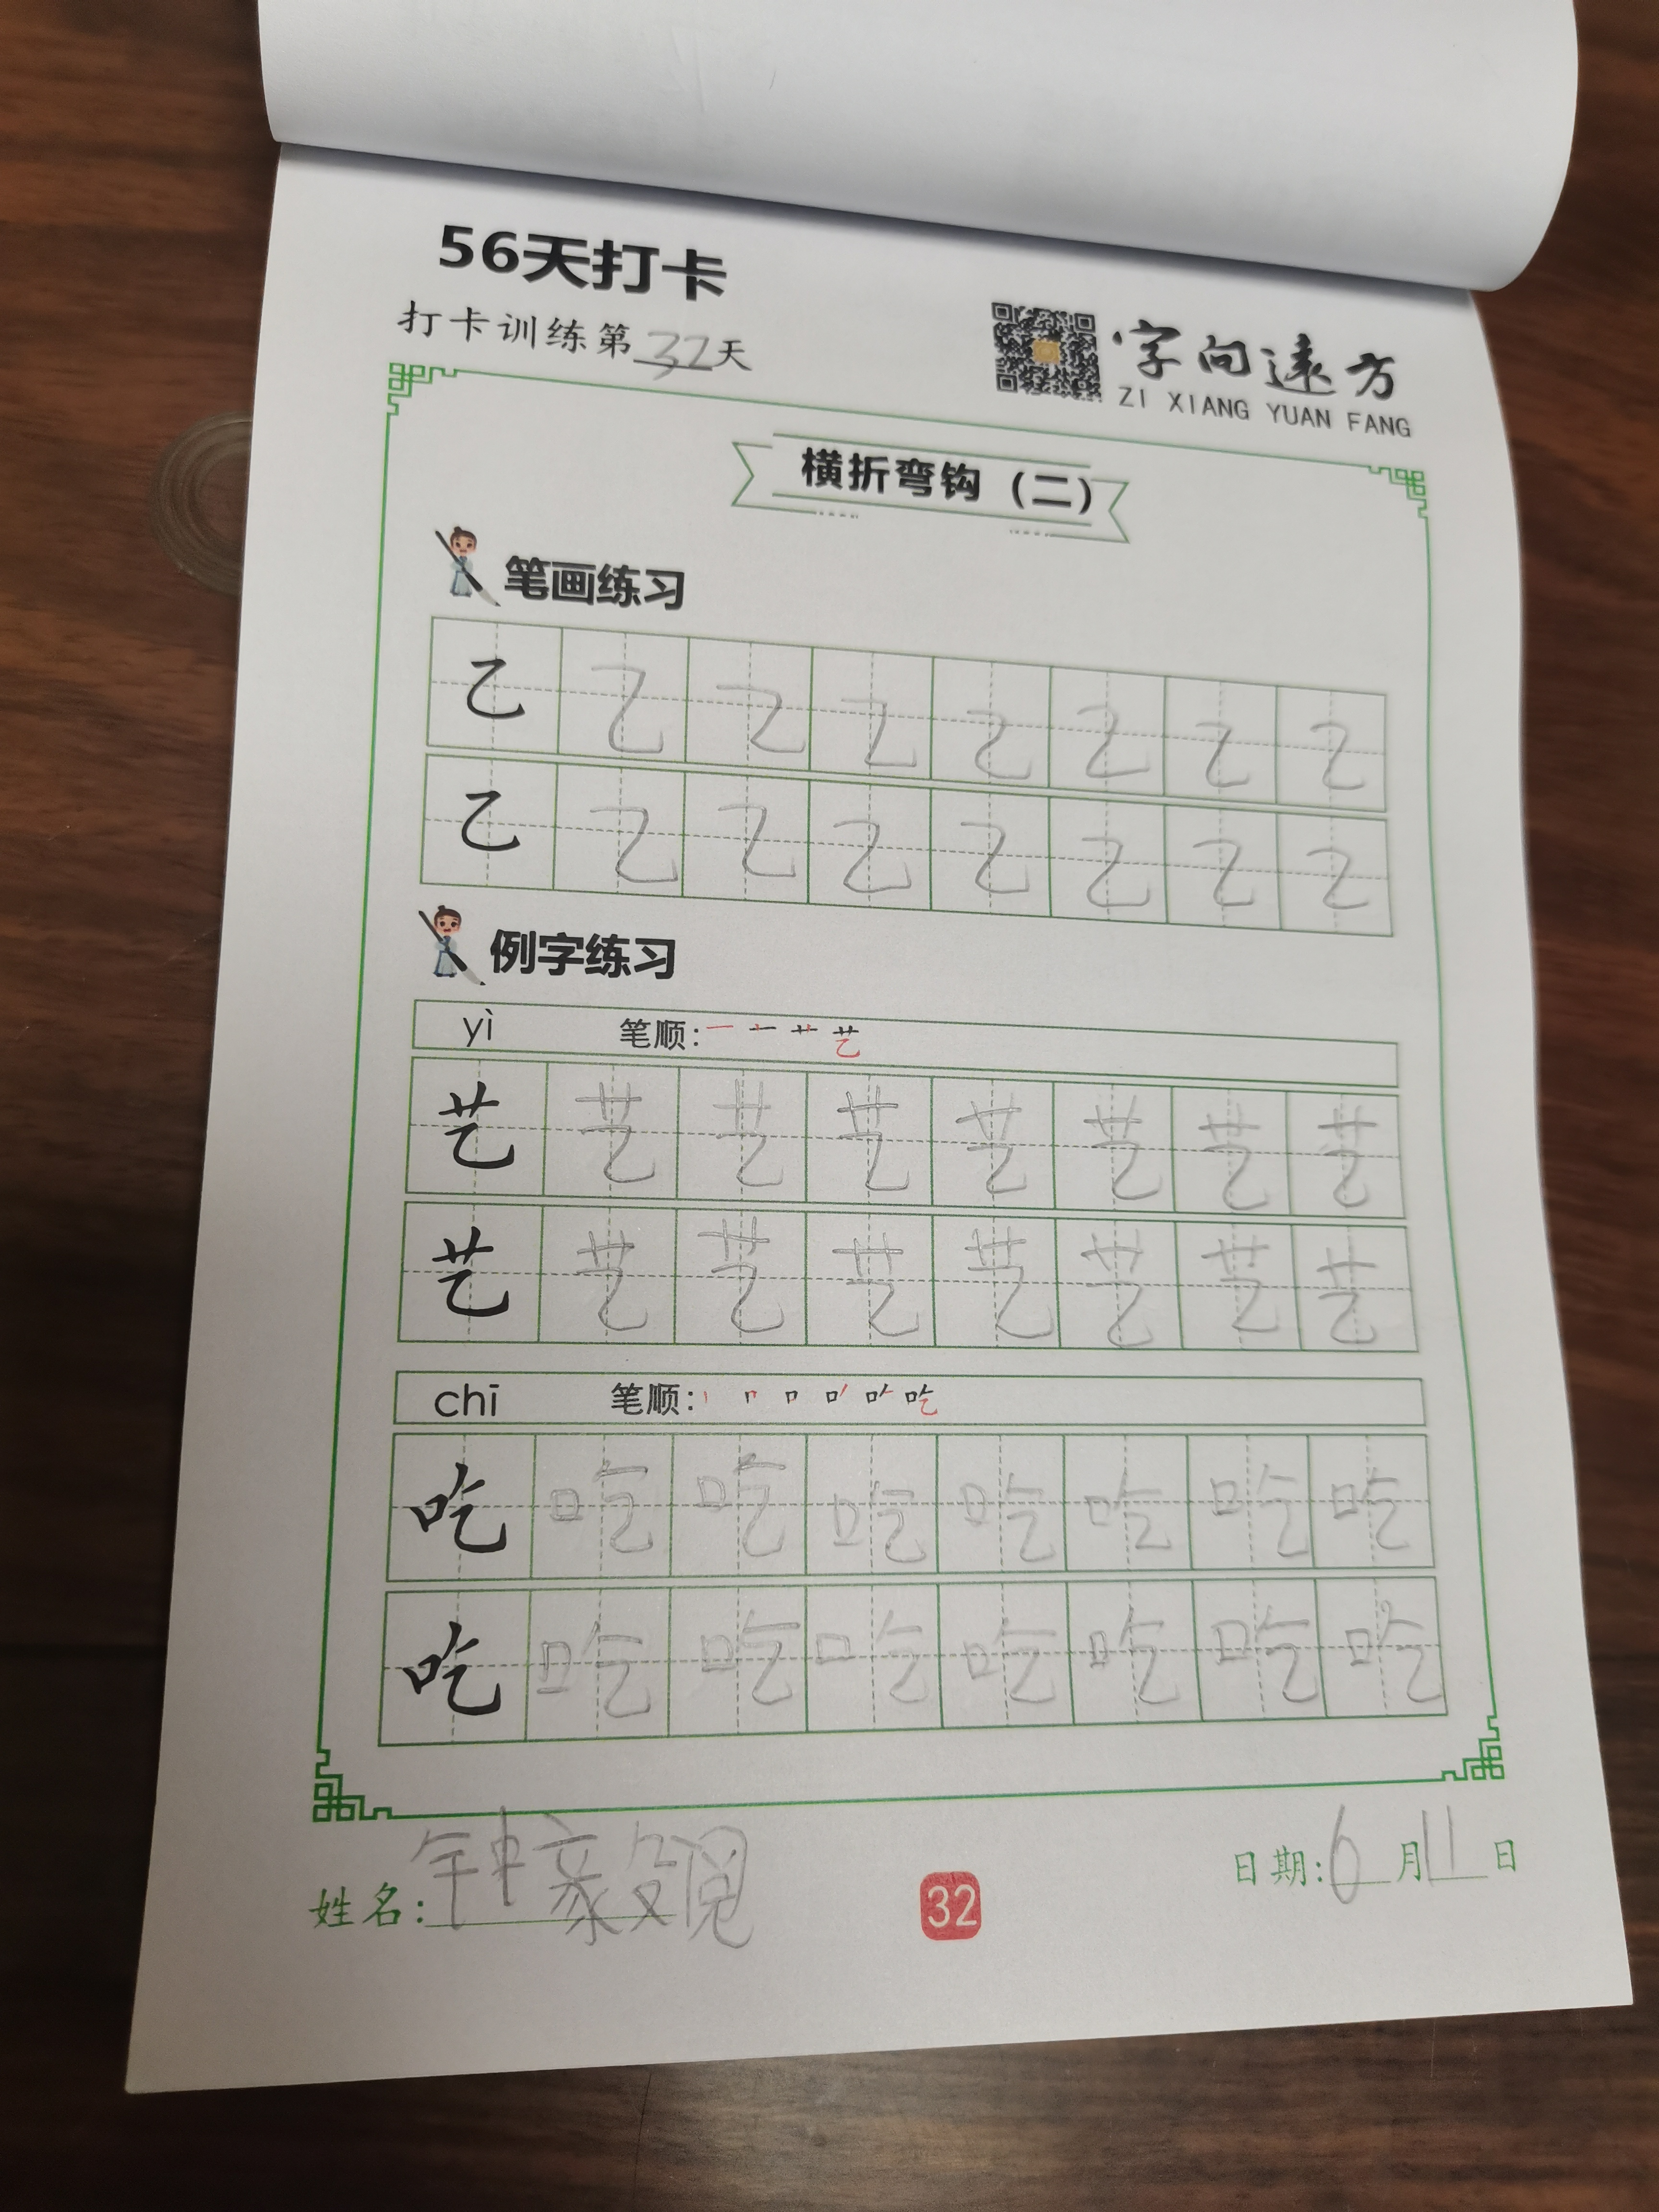 56天打卡
打卡训练第32天
字向远方
ZI XIANG YUAN FANG
横折弯钩（二）
笔画练习
乙 乙 乙 乙 乙 乙 乙 乙
乙 乙 乙 乙 乙 乙 乙 乙
例字练习
yì 笔顺: 艺
艺 艺 艺 艺 艺 艺 艺 艺
艺 艺 艺 艺 艺 艺 艺 艺
chī 笔顺: 吃
吃 吃 吃 吃 吃 吃 吃 吃
吃 吃 吃 吃 吃 吃 吃 吃
姓名: 钟
32
日期: 6月11日